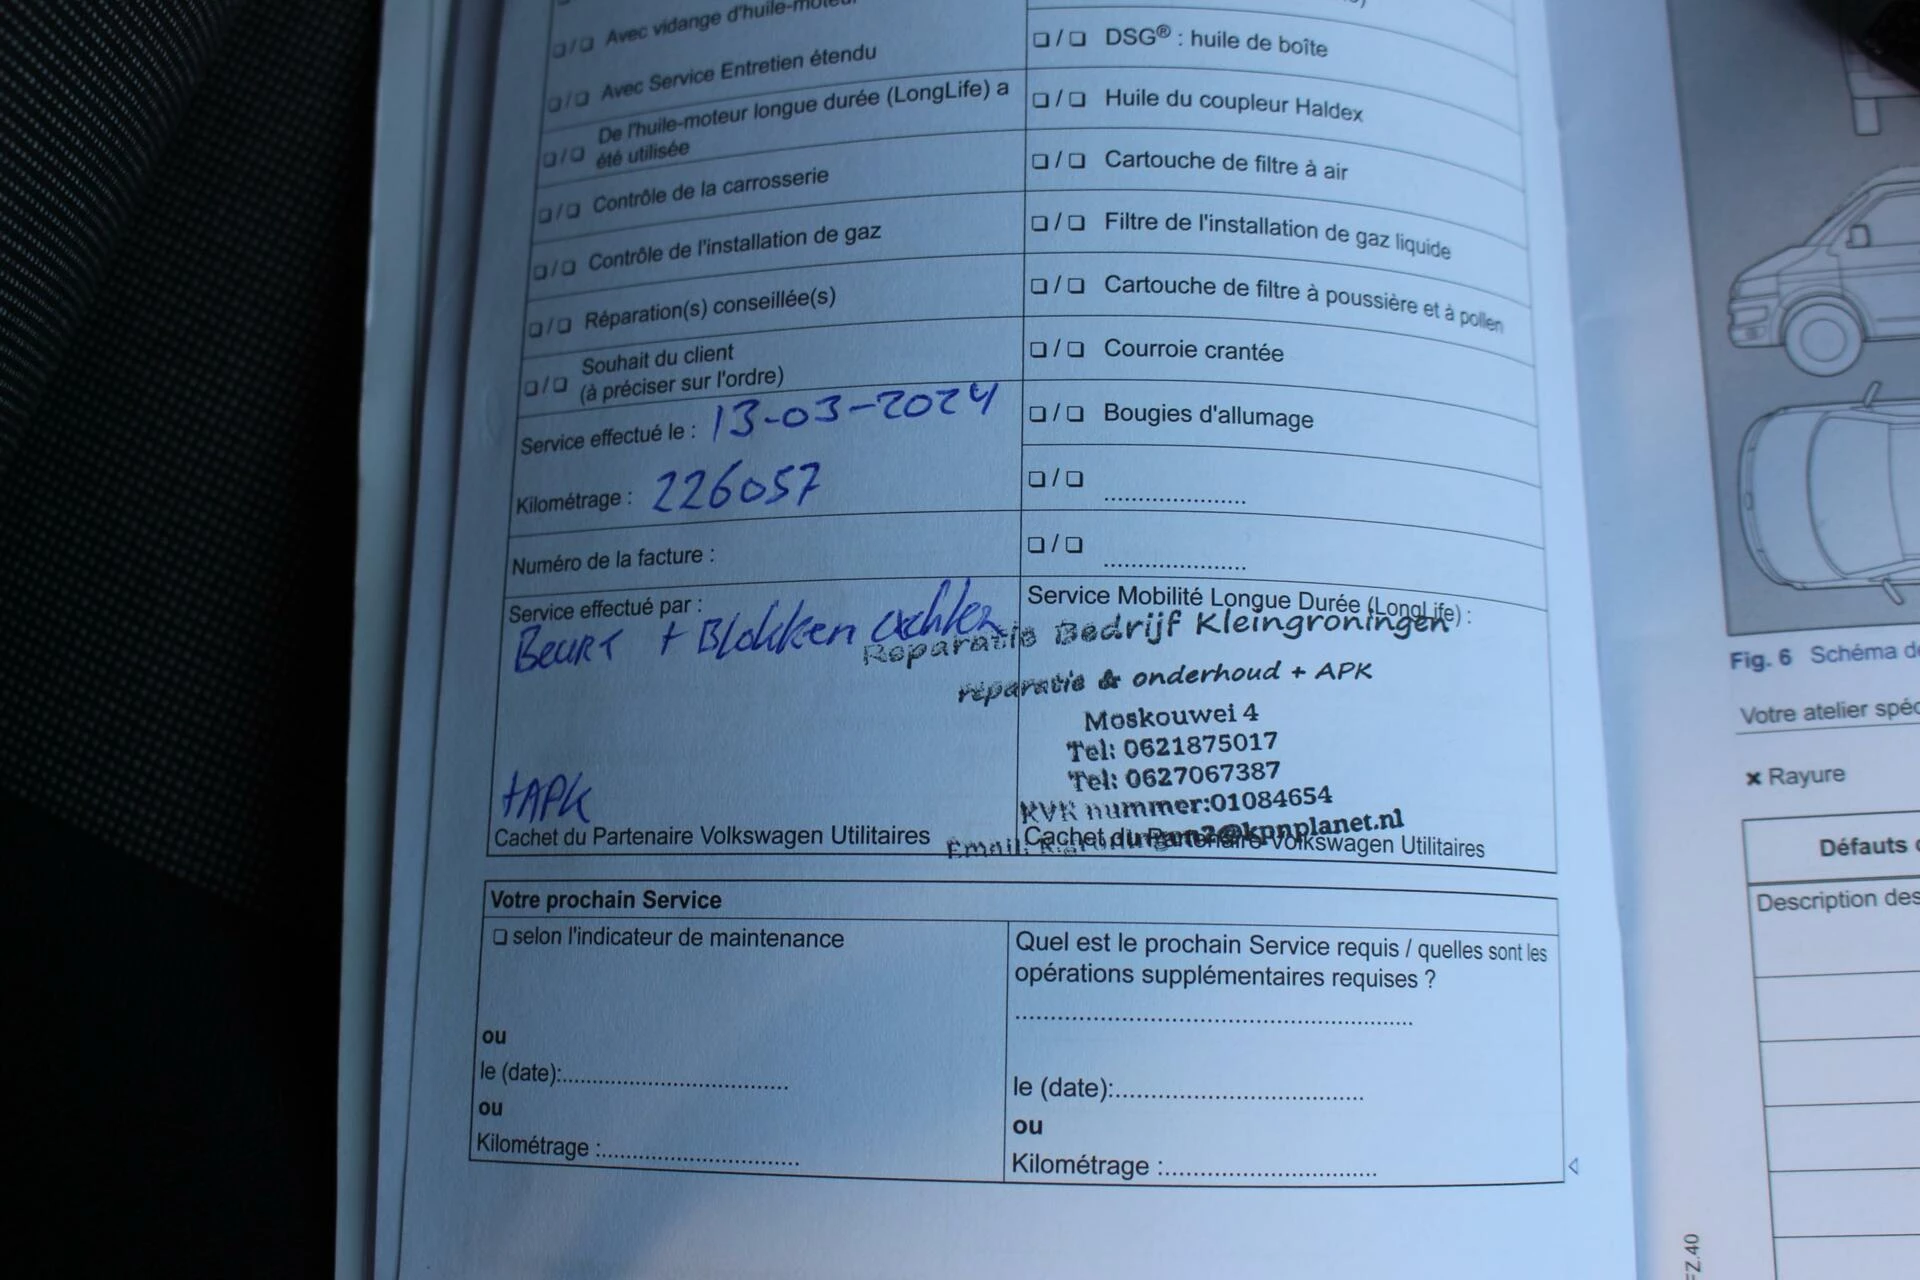 ❏ / ❏ Avec vidange d'huile-moteur
❏ / ❏ Avec Service Entretien étendu
❏ / ❏ De l'huile-moteur longue durée (LongLife) a
été utilisée
❏ / ❏ Contrôle de la carrosserie
❏ / ❏ Contrôle de l'installation de gaz
❏ / ❏ Réparation(s) conseillée(s)
❏ / ❏ Souhait du client
(à préciser sur l'ordre)
Service effectué le : 13-03-2024
Kilométrage : 226057
Numéro de la facture :
Service effectué par :
Beurt + Blokken achter
+APK
Cachet du Partenaire Volkswagen Utilitaires
❏ / ❏ DSG® : huile de boîte
❏ / ❏ Huile du coupleur Haldex
❏ / ❏ Cartouche de filtre à air
❏ / ❏ Filtre de l'installation de gaz liquide
❏ / ❏ Cartouche de filtre à poussière et à pollen
❏ / ❏ Courroie crantée
❏ / ❏ Bougies d'allumage
❏ / ❏ ........................
❏ / ❏ ........................
Service Mobilité Longue Durée (LongLife) :
Reparatie Bedrijf Kleingroningen
reparatie & onderhoud + APK
Moskouwei 4
Tel: 0621875017
Tel: 0627067387
KVK nummer:01084654
Email: @kpnplanet.nl
Cachet du Partenaire Volkswagen Utilitaires
Votre prochain Service
❏ selon l'indicateur de maintenance
ou
le (date):........................................
ou
Kilométrage :...................................
Quel est le prochain Service requis / quelles sont les
opérations supplémentaires requises ?
....................................................................
le (date):...........................................
ou
Kilométrage :.....................................
Fig. 6 Schéma
Votre atelier
× Rayure
Défauts
Description des
FZ.40